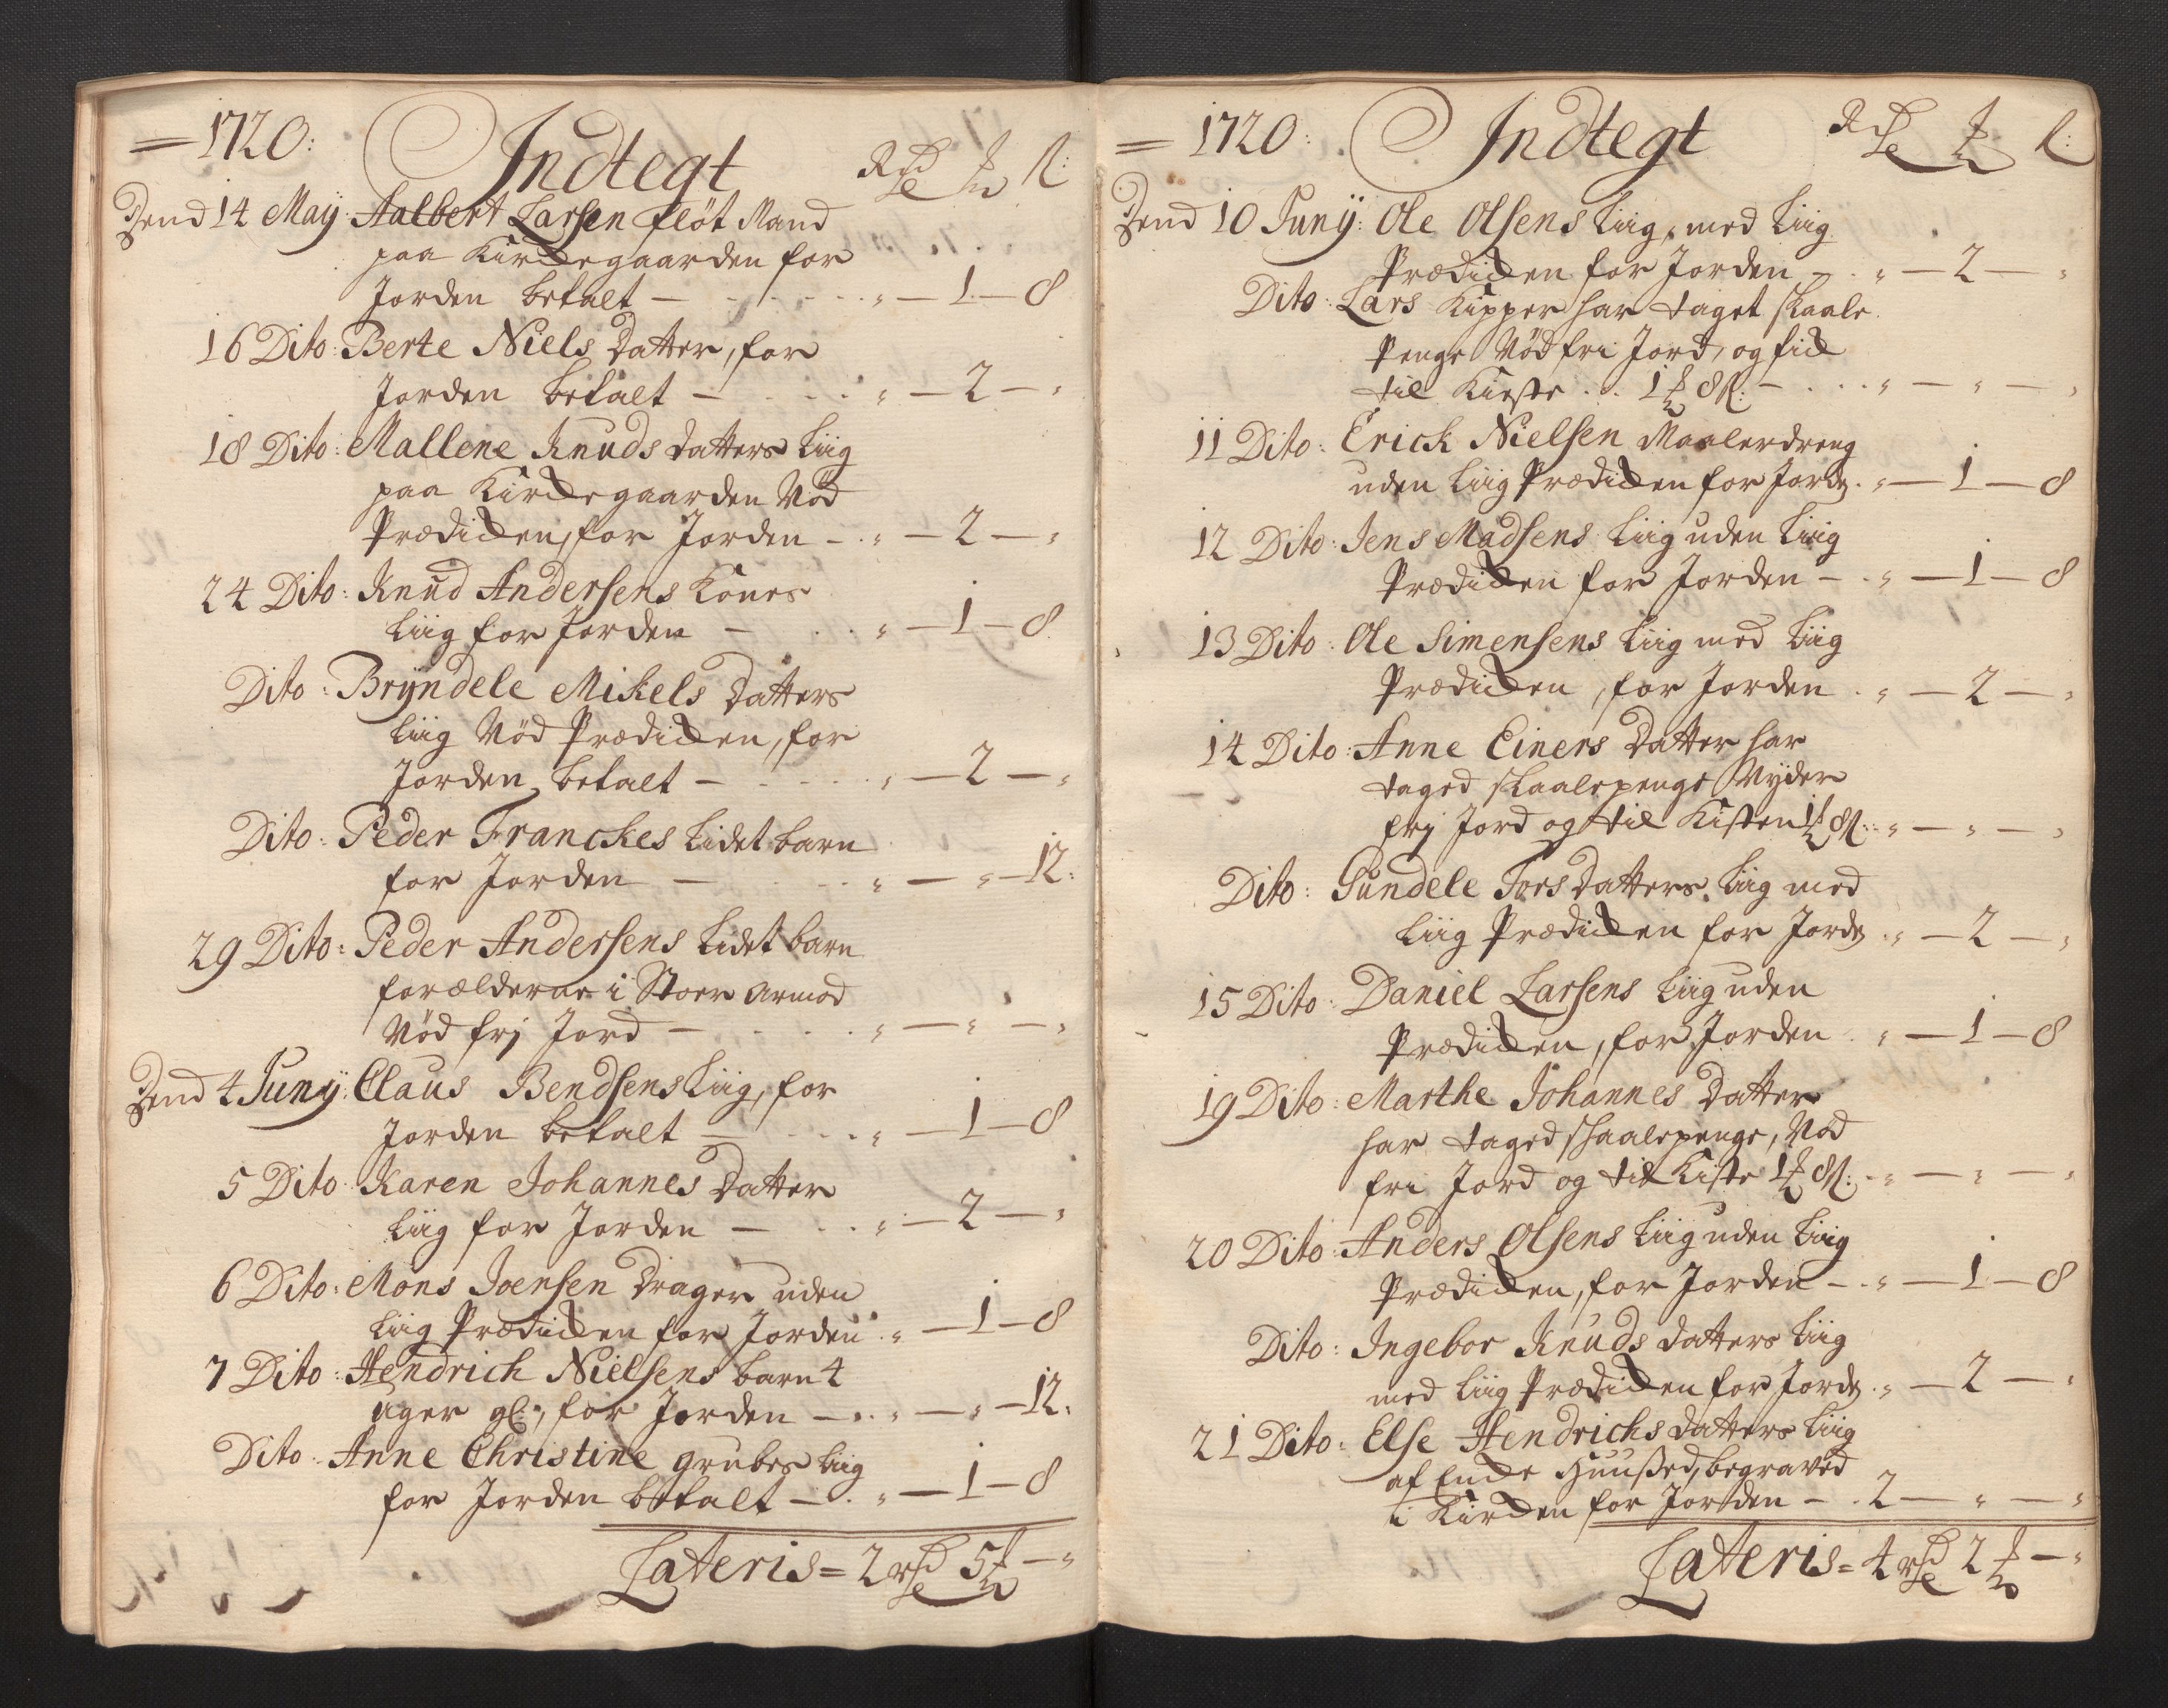 1720: Indtegt Rdr
Dend 14 Maÿ: Aalbert Larsen fløt Mand
paa Kirckegaarden for
Jorden betalt — „ — 1 — 8
16 Dito: Berte Niels Datter, for
Jorden betalt — „ — 2 — „
18 Dito: Mallene Knuds datters Liig
paa Kirckegaarden Nød
Prædicken, for Jorden — „ — 2 — „
24 Dito: Knud Andersens Kones
Liig for Jorden — „ — 1 — 8
Dito: Bryndele Mikels Datters
Liig Nød Prædicken, for
Jorden betalt — „ — 2 — „
Dito: Peder Franckes Lidet barn
for Jorden — „ — „ — 12:
29 Dito: Peder Andersens Lidet barn
forælderne i Stoer Armod
Nød frj Jord — „ — „ — „
Dend 4 Junÿ: Claus Bendsens Liig, for
Jorden betalt — „ — 1 — 8
5 Dito: Karen Johannes Datter
Liig for Jorden — „ — 2 — „
6 Dito: Mons Joensen Drager uden
Liig Prædicken for Jorden „ — 1 — 8
7 Dito: Hendrich Nielsens barn 4
uger gl:, for Jorden — „ — „ — 12.
Dito: Anne Christine grubes Liig
for Jorden betalt — „ — 1 — 8
Lateris = 2 rdr 5 — „
1720: Indtegt Rdr
Dend 10 Junÿ: Ole Olsens Liig, med Liig
Prædicken for Jorden — „ — 2 — „
Dito: Lars Kipper har taget skaale
Penge Nød fri Jord, og fick
til Kieste 1 8 — „ — „ — „
11 Dito: Erick Nielsen Maalerdreng
uden Liig Prædicken for Jorden „ — 1 — 8
12 Dito: Jens Madsens Liig uden Liig
Prædicken for Jorden — „ — 1 — 8
13 Dito: Ole Simensens Liig med Liig
Prædicken, for Jorden „ — 2 — „
14 Dito: Anne Einers Datter har
taged skaalepenge Nyder
frj Jord og til Kisten 1 8 „ — „ — „
Dito: Gundele Toers Datters Liig med
Liig Prædicken for Jorden „ — 2 — „
15 Dito: Daniel Larsens Liig uden
Prædicken, for Jorden „ — 1 — 8
19 Dito: Marthe Johannes Datter
har taged skaalepenge, Nød
fri Jord og til Kiste 1 8 „ — „ — „
20 Dito: Anders Olsens Liig uden Liig
Prædicken, for Jorden — „ — 1 — 8
Dito: Ingebor Knuds datters Liig
med Liig Prædicken for Jorden „ — 2 — „
21 Dito: Else Hendrichs datters Liig
af Encke Huused, begraved
i Kircken for Jorden — 2 — „ — „
Lateris = 4 rdr 2 — „